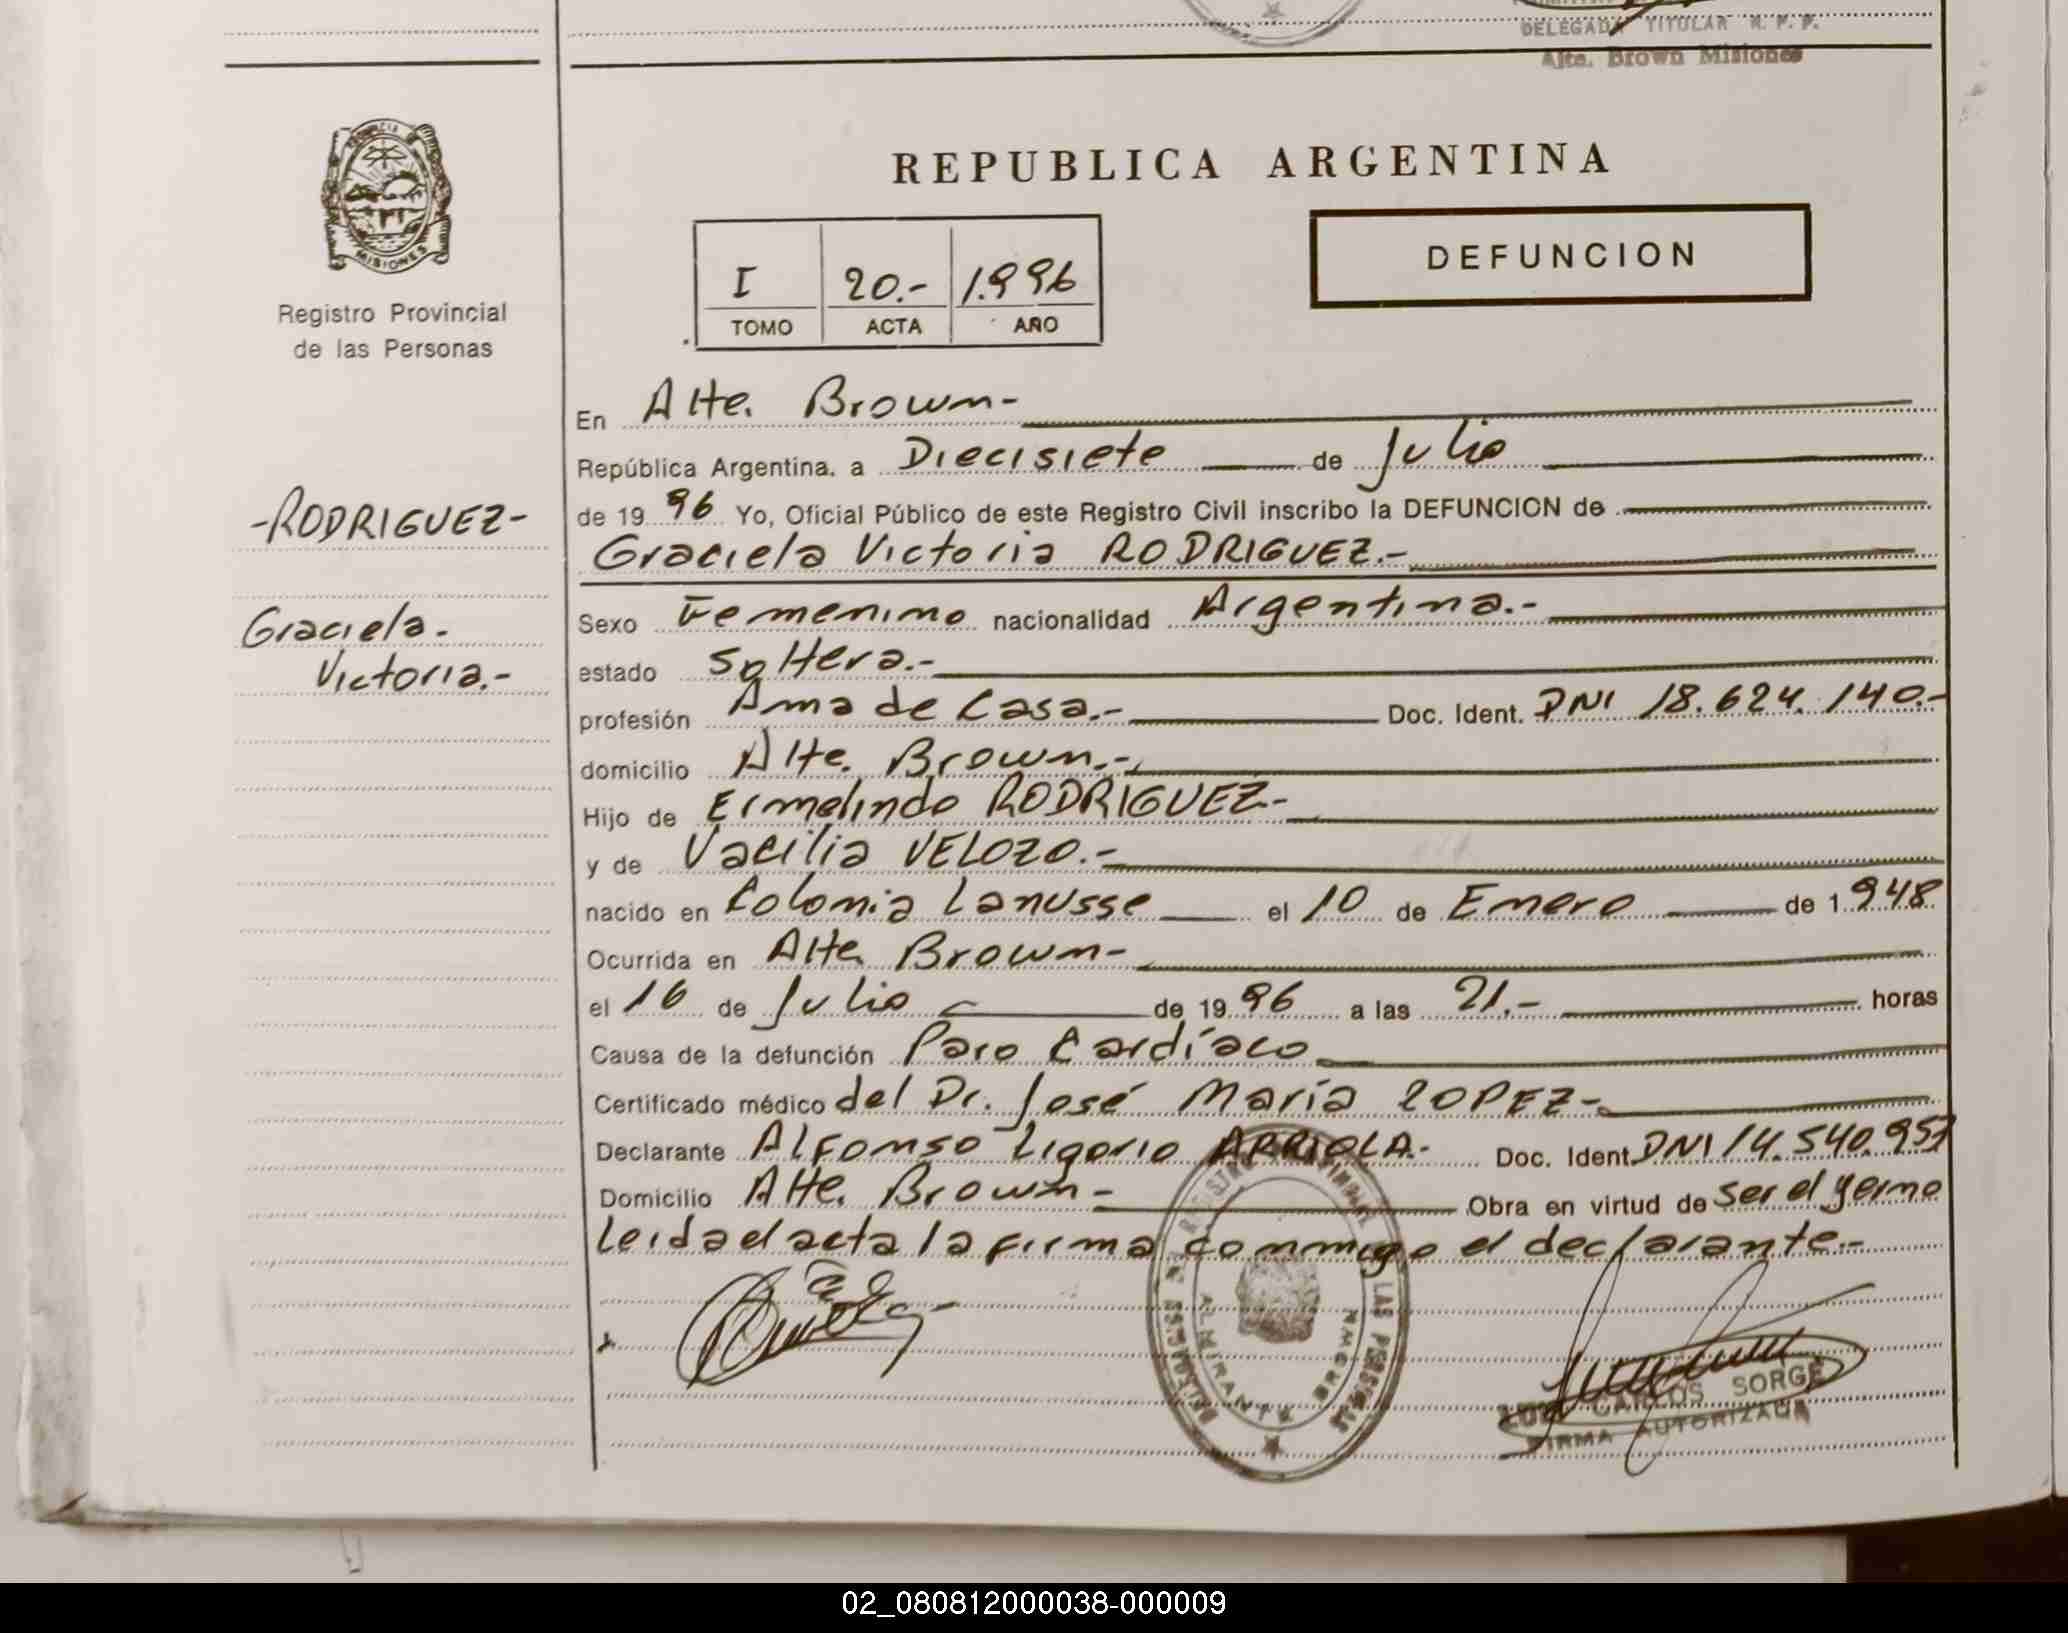 DELEGADA TITULAR R. P. P.
Alte. Brown Misiones
PROVINCIA DE
MISIONES
Registro Provincial
de las Personas
REPUBLICA ARGENTINA
DEFUNCION
I 20.- 1.996
TOMO ACTA AÑO
En Alte. Brown-
República Argentina, a Diecisiete de Julio
de 1996 Yo, Oficial Público de este Registro Civil inscribo la DEFUNCION de
Graciela Victoria RODRIGUEZ.-
-RODRIGUEZ-
Graciela.
Victoria.-
Sexo Femenino nacionalidad Argentina.-
estado Soltera.-
profesión Ama de Casa.- Doc. Ident. DNI 18.624.140.-
domicilio Alte. Brown.-
Hijo de Ermelindo RODRIGUEZ-
y de Vacilia VELOZO.-
nacido en Colonia Lanusse el 10 de Enero de 1948
Ocurrida en Alte. Brown-
el 16 de Julio de 1996 a las 21.- horas
Causa de la defunción Paro Cardíaco
Certificado médico del Dr. José María LOPEZ-
Declarante Alfonso Ligorio ARRIOLA.- Doc. Ident. DNI 14.540.957
Domicilio Alte. Brown- Obra en virtud de ser el yerno
Leida el acta la firma conmigo el declarante.-
ALMIRANTE BROWN
CARLOS SORGE
FIRMA AUTORIZADA
02_080812000038-000009